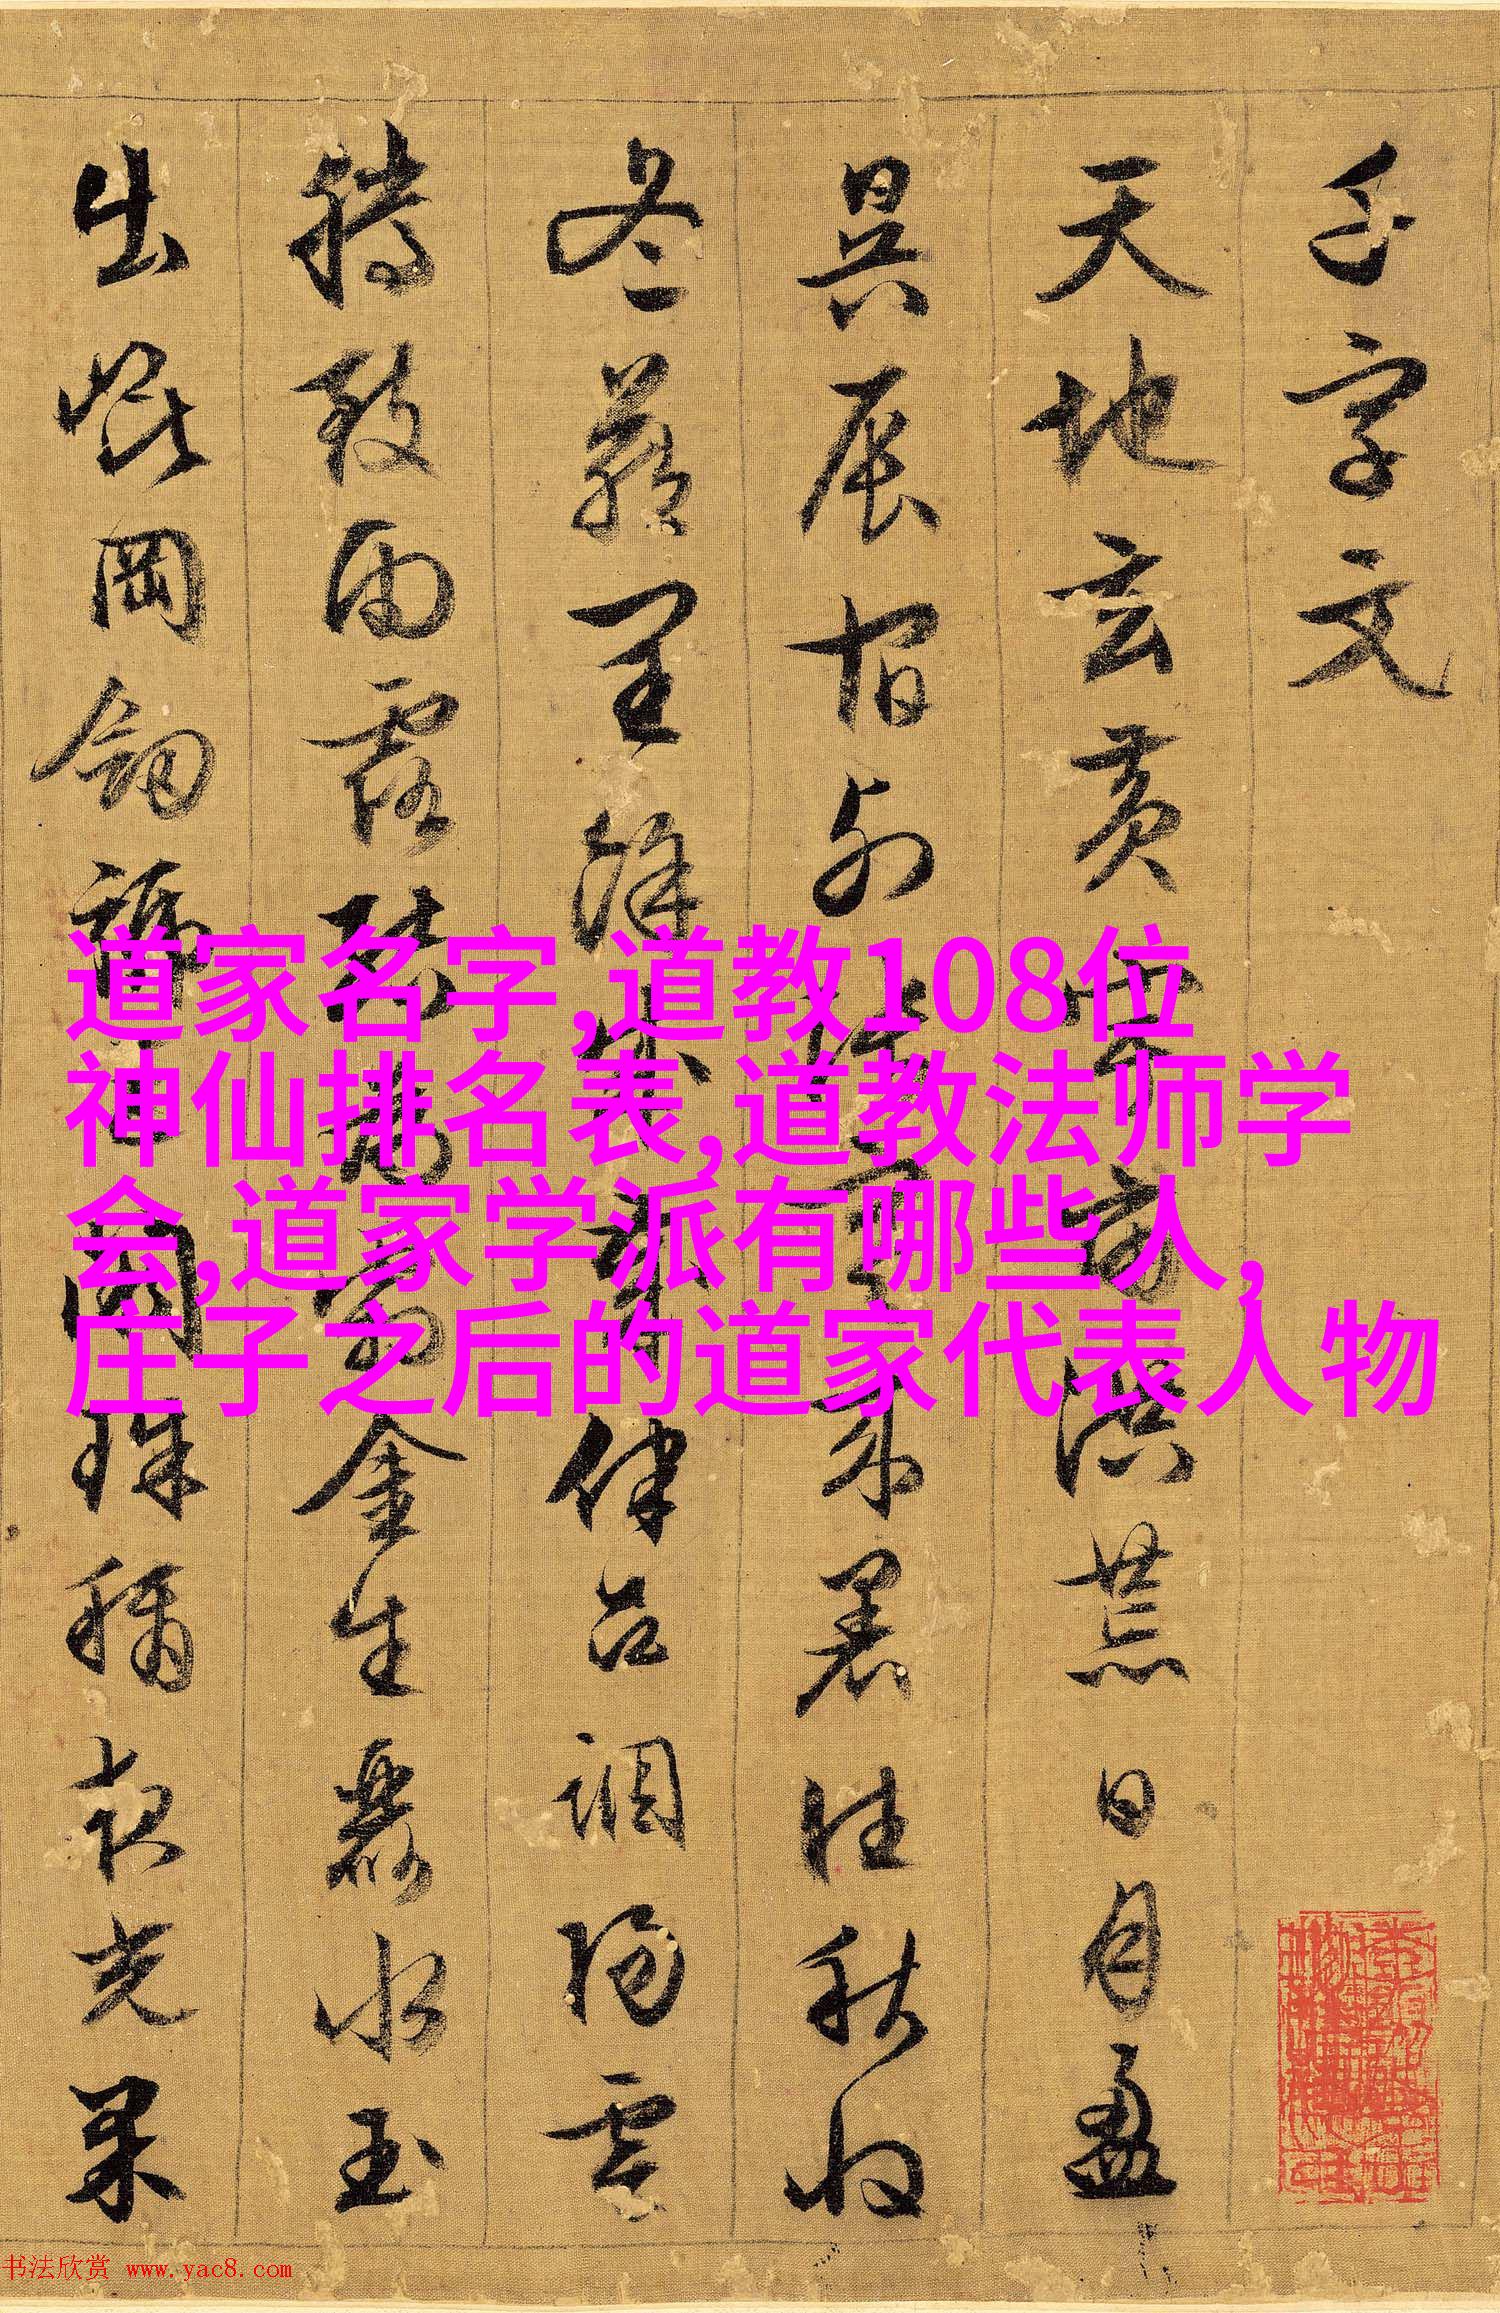 千字文
天地玄黄宇宙洪荒日月盈
昃辰宿列张寒来暑往秋收
冬藏閏餘成歲律吕調陽雲
騰致雨露結為霜金生麗水玉
出崑岡劒號巨闕珠稱夜光果
道家名字,道教108位
神仙排名表,道教法师学
会,道家学派有哪些人,
庄子之后的道家代表人物
书法欣赏 www.yac8.com